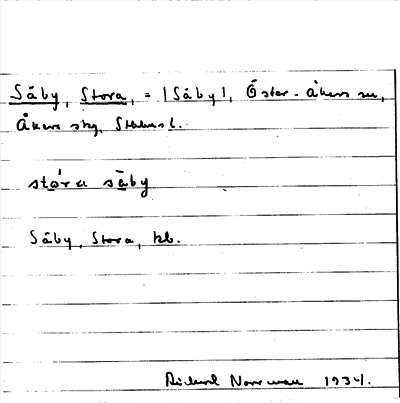 Säby, Stora, = |Säby|, Öster-Åkers sn,
Åkers skg, Sthlms l.
stóra säby
Säby, Stora, kb.
Rickard Norrman 1934.